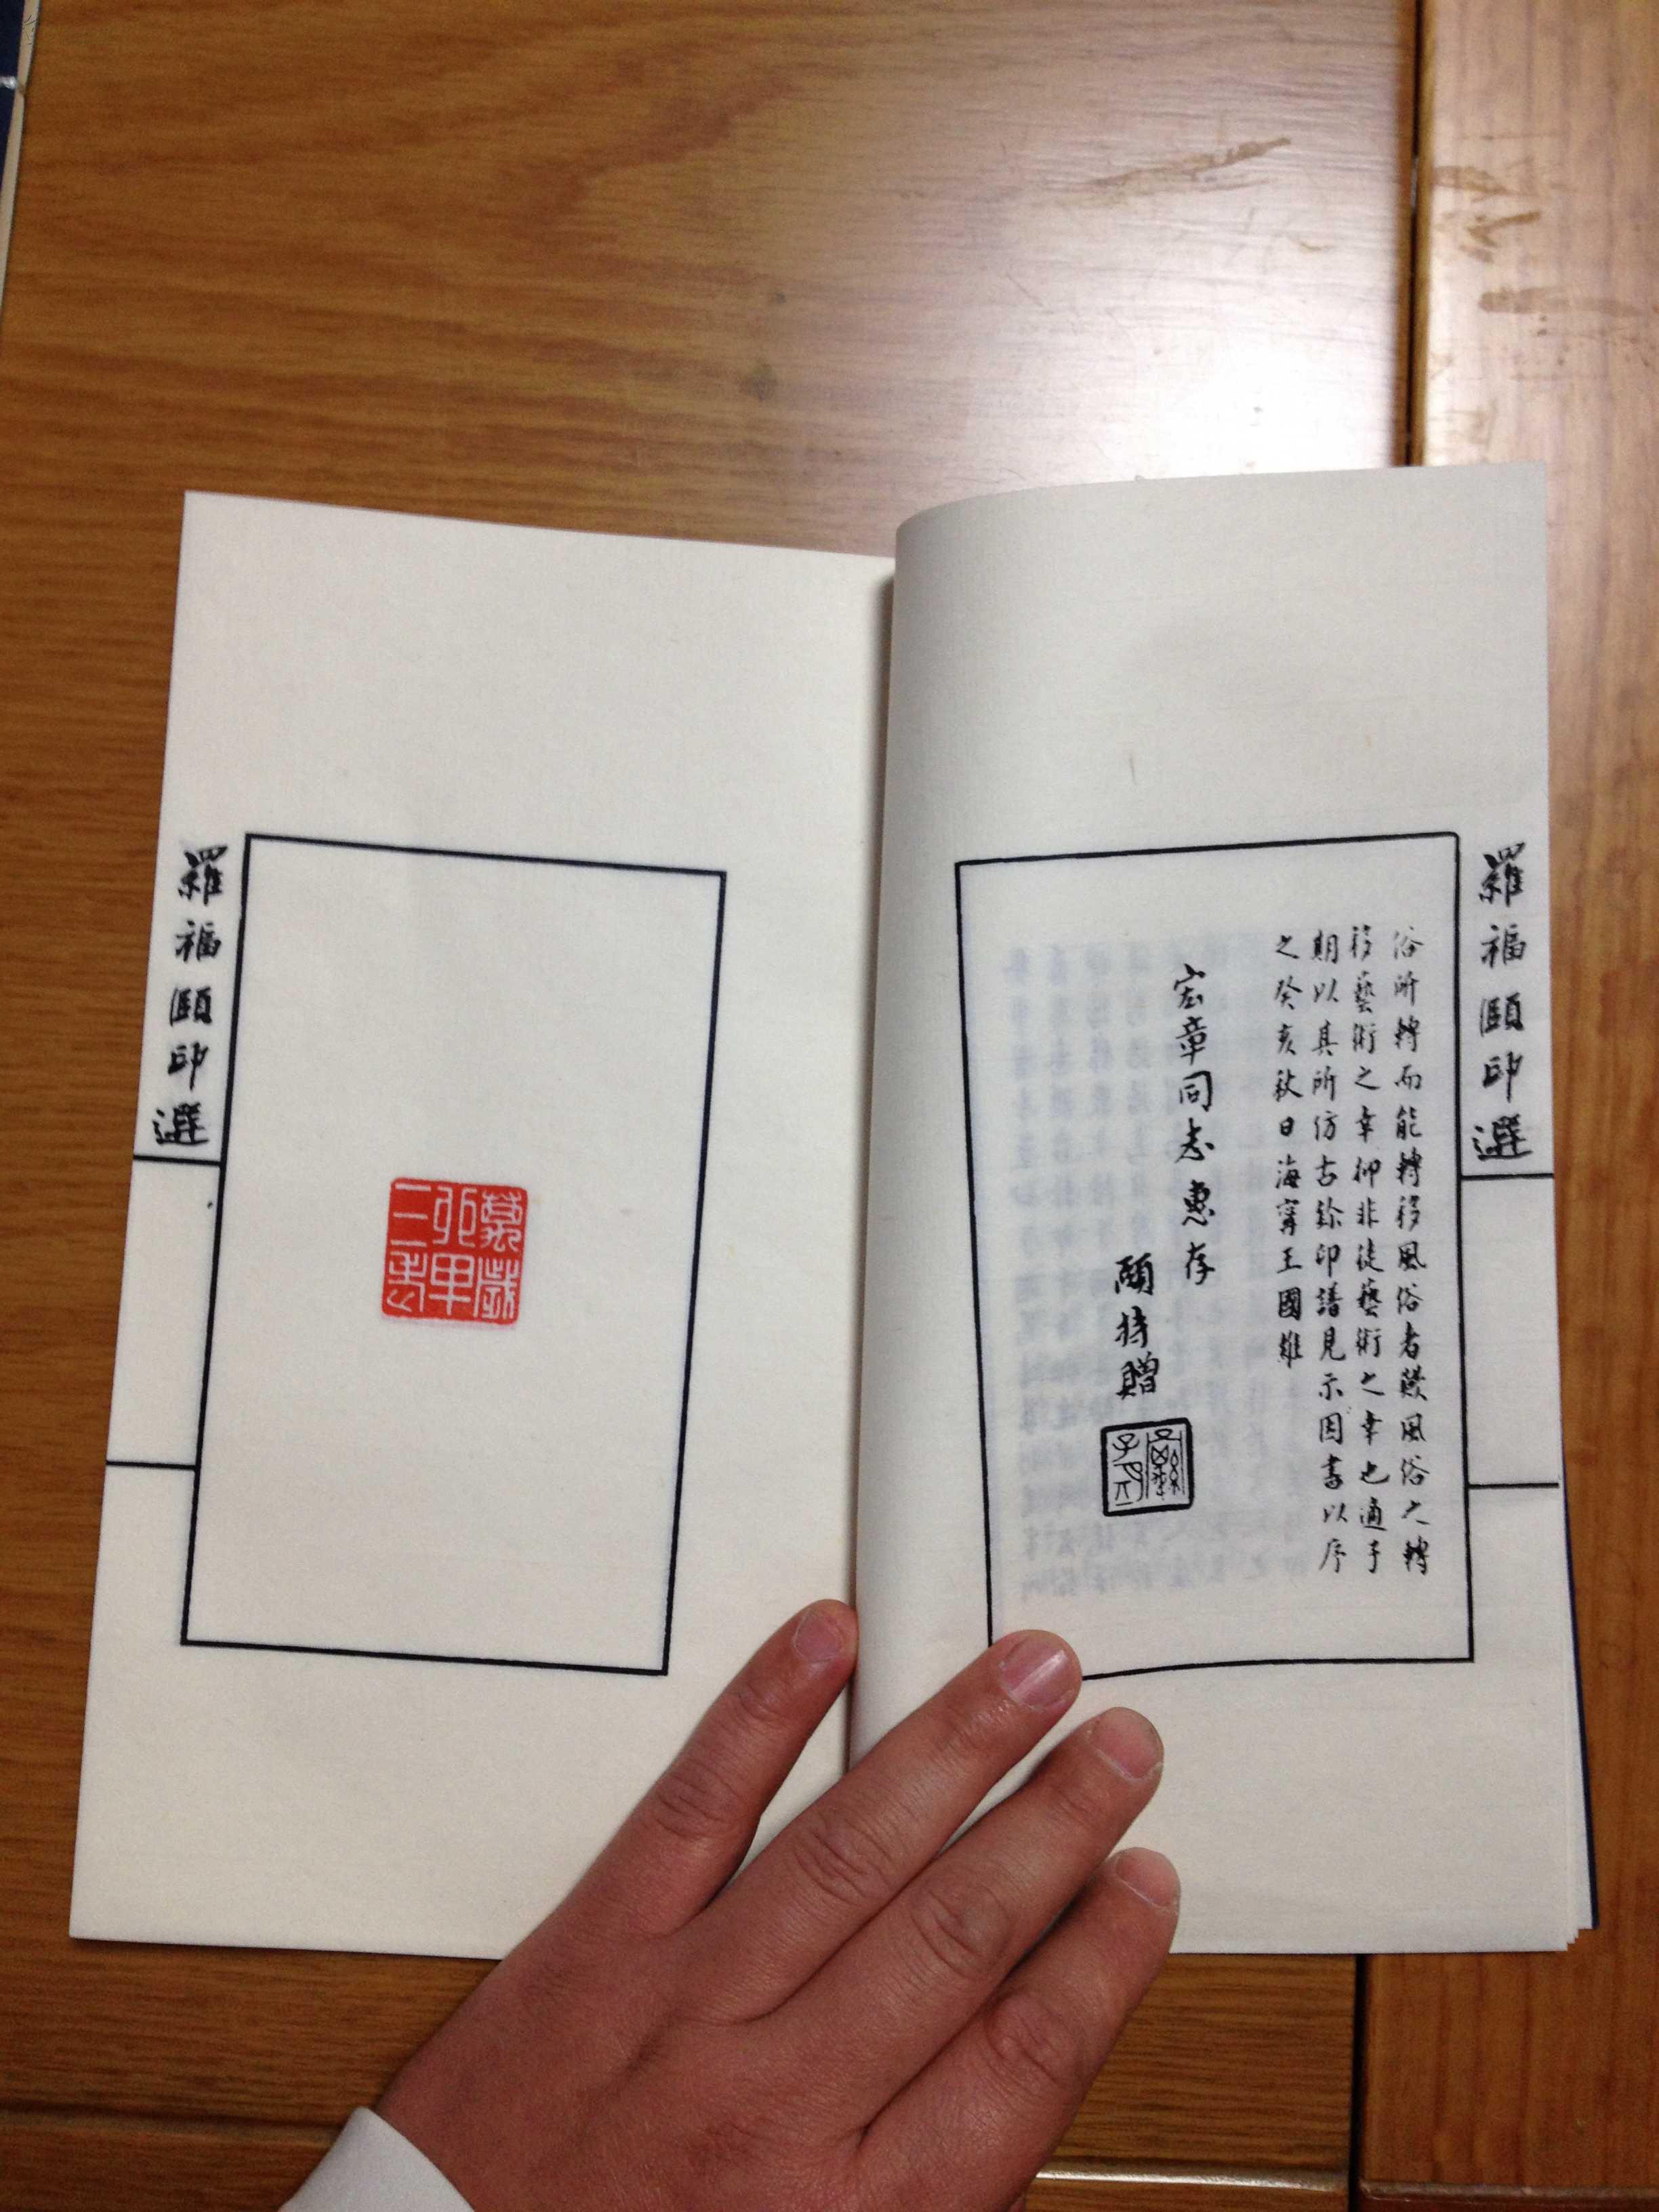 羅福頤印選
俗所轉而能轉移風俗者歟風俗之轉
移藝術之幸抑非徒藝術之幸也適子
期以其所仿古鉨印譜見示因書以序
之癸亥秋日海寧王國維
宏章同志惠存
頤持贈
羅福頤印選